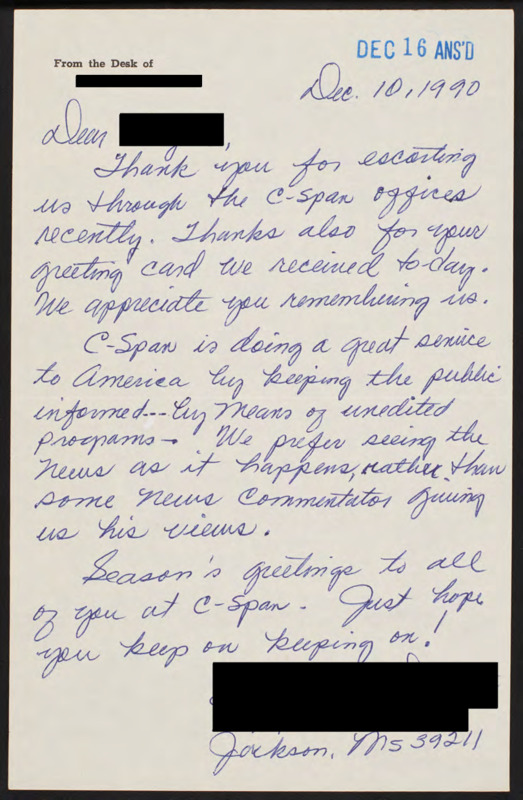 DEC 16 ANS'D
From the Desk of
Dec. 10, 1990
Dear
Thank you for escorting
us through the C-Span offices
recently. Thanks also for your
greeting card we received to-day.
We appreciate you remembering us.
C-Span is doing a great service
to America by keeping the public
informed -- by means of unedited
programs -. We prefer seeing the
news as it happens, rather than
some news commentator giving
us his views.
Season's greetings to all
of you at C-Span. Just hope
you keep on keeping on!
Jackson, Ms 39211